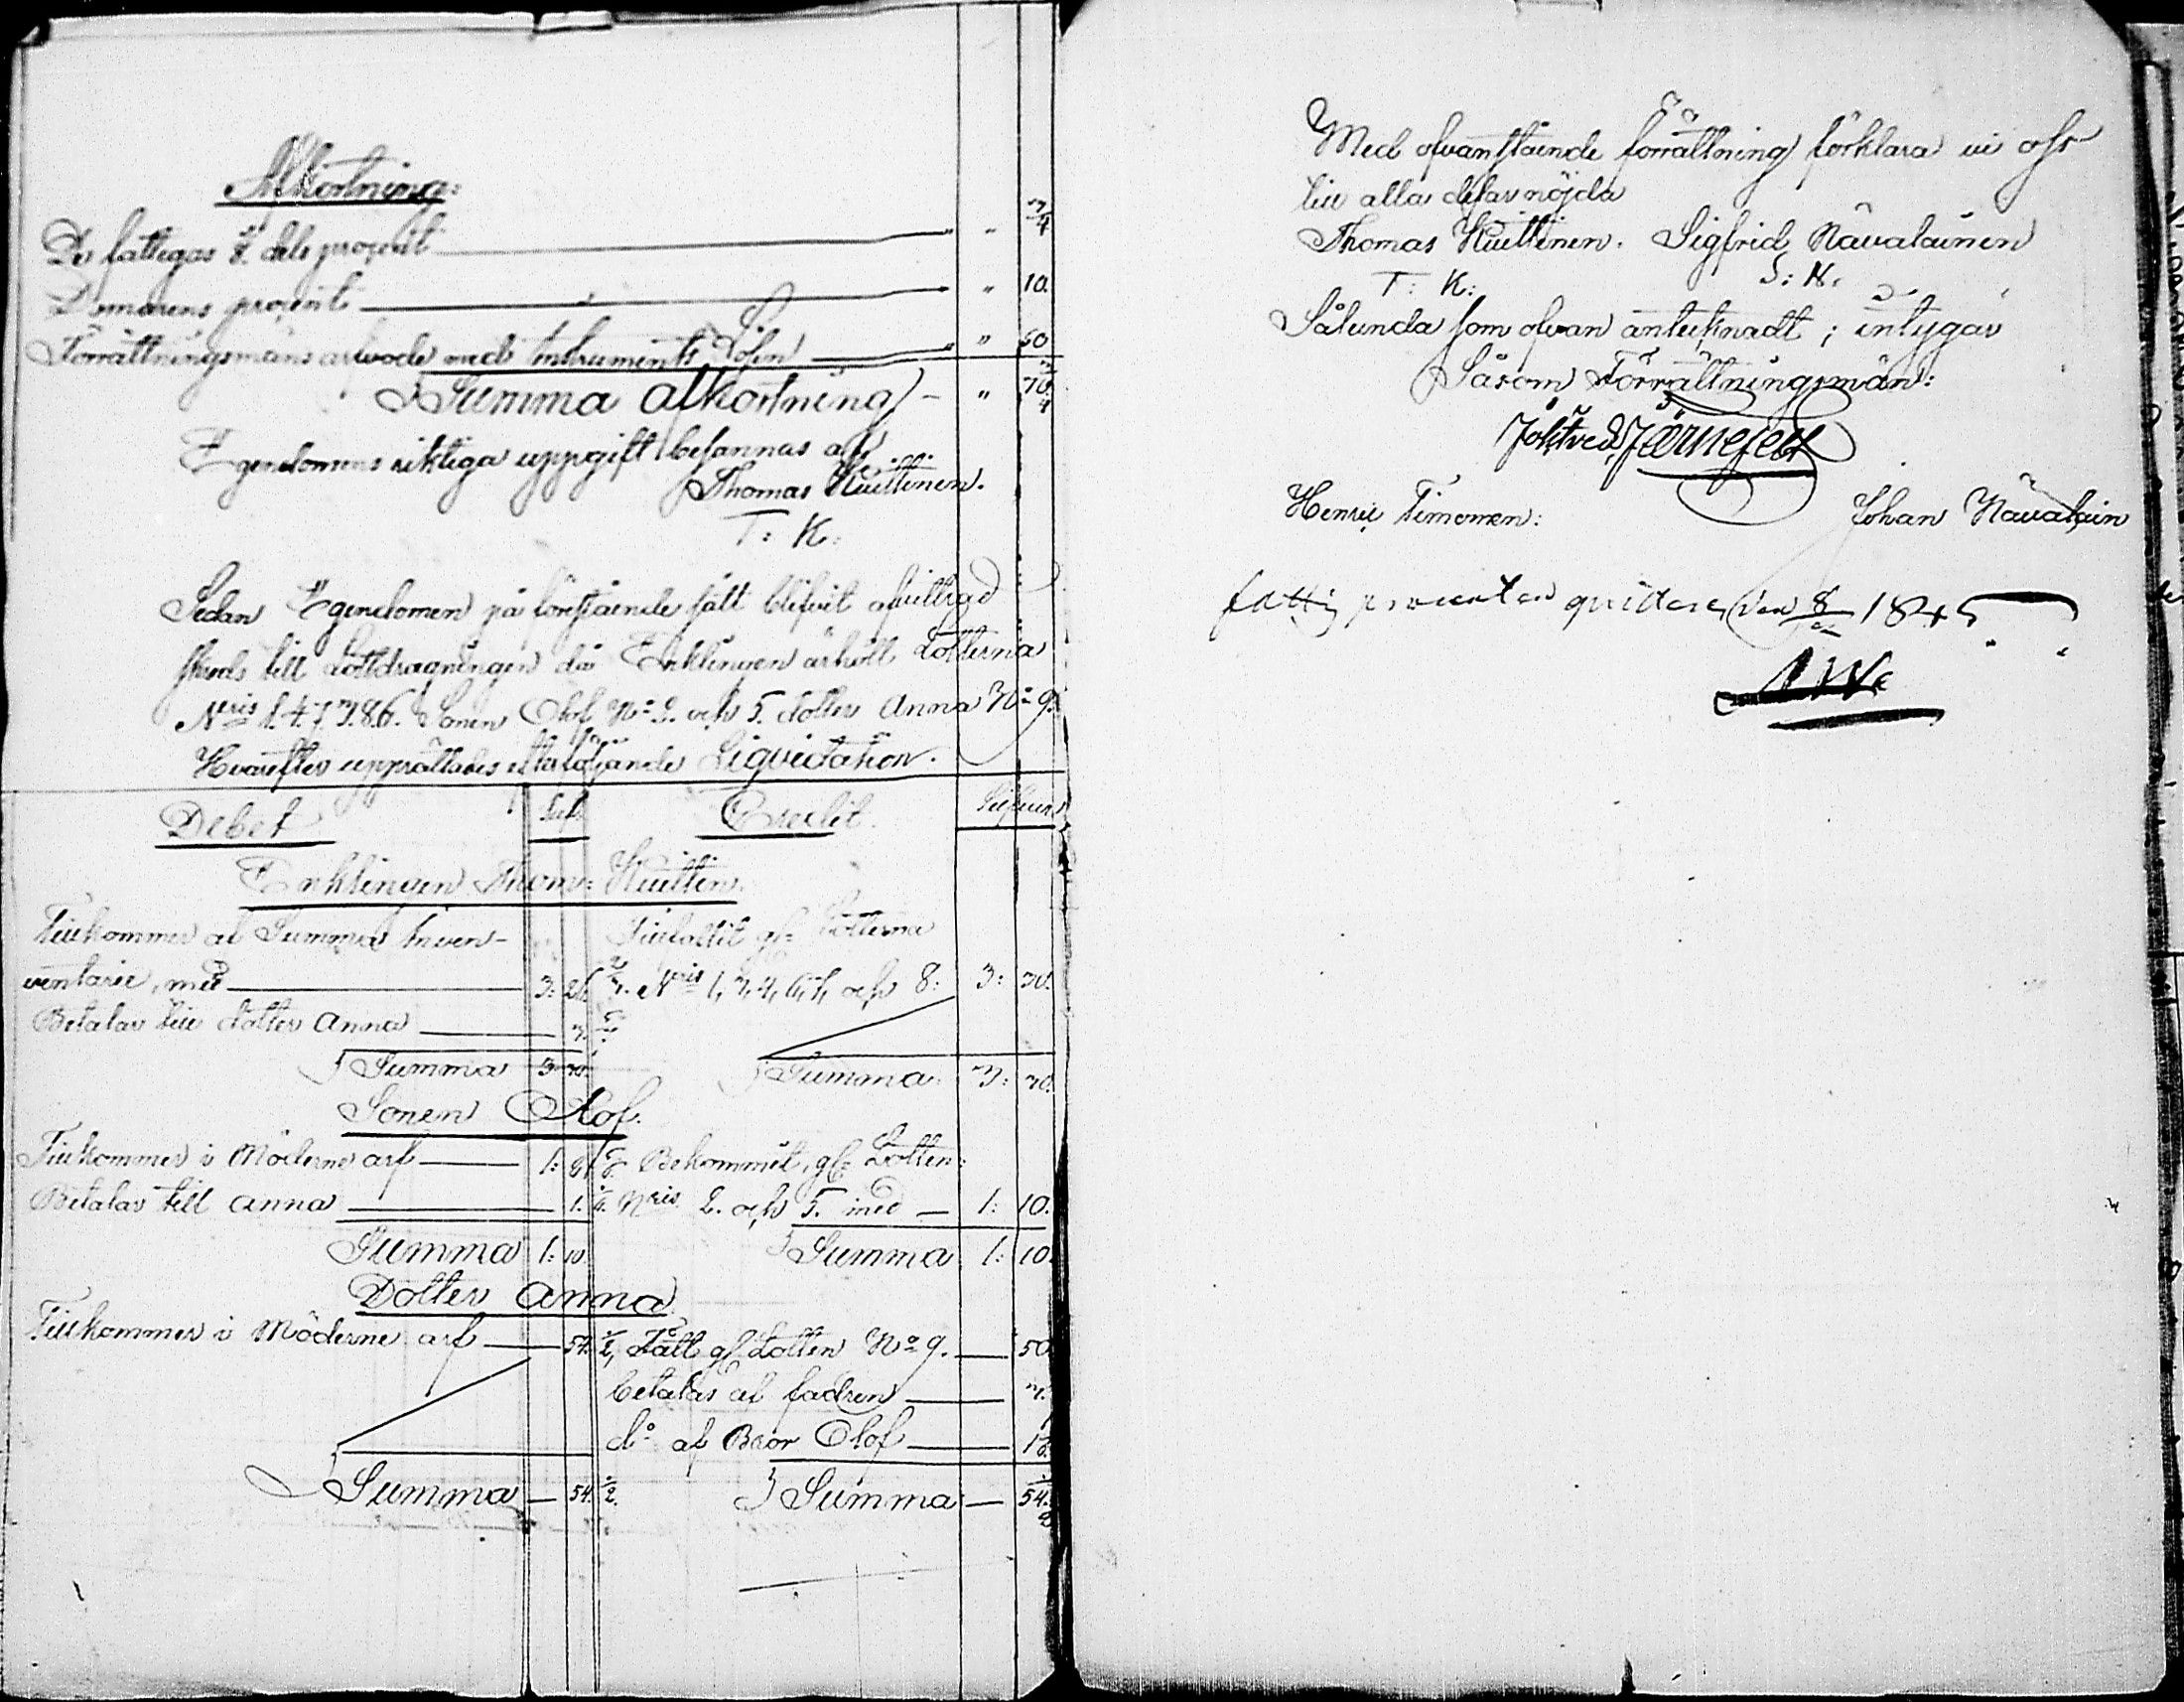 Afkortning:
De fattigas 8. dels procent " " 3/4
Domarens procent " 10.
Förrättningsmäns arfvode med Instruments Lösen " " 60
Summa Afkortning " 70 3/4
Egendomens riktiga uppgift besannas af
Thomas Kuittinen.
T: K:
Sedan Egendomen på förestående sätt blifvit afvittrad
skreds till Lottdragningen då Enklingen ärhöll Lotterna
Nris 1.4.7.3.8.6. Sonen Olof No 2. och 5. dotter Anna No 9.
Hvarefter upprättades efterföljande Liqvidation.
Debet Silfr. Credit. Silfver
Enklingen Thom: Kuittin.
Tillkommer af Summa Inven-
ventarie, med 3: 26.
Tillfallit gm Lotterna
Nris 1, 3, 4, 6, 7, och 8: 3: 30.
Betalar till dotter Anna 3.
Summa 3 30. Summa: 3: 30.
Sonen Olof.
Tillkommer i Möderne arf 1: 8. Bekommit, gm Lotten:
Betalar till Anna 1. Nris 2. och 5. med 1: 10.
Summa 1: 10. Summa 1: 10.
Dotter Anna
Tillkommer i Möderne arf 54. 1/2, Fått gm Lotten No 9. 50
betalas af fadren 3.
do af Bror Olof 1
Summa 54. 1/2. Summa 54. 1/2
Med ofvanstående förrättning förklara vi oss
till alla delar nöjda
Thomas Kuittinen. Sigfrid Navalainen
T: K: S: N.
Sålunda som ofvan antecknadt; intygar
Såsom Förrättningsmän:
Järnefelt
Henric Timonen: Johan Navalain
fattig procenten qvitteras den 8 1845